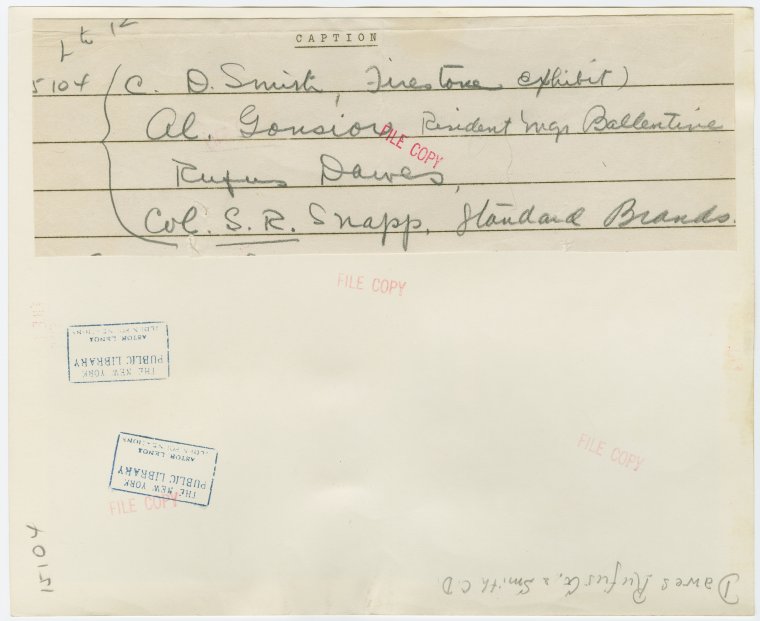 L to R
CAPTION
5104 (C. D. Smith, Firestone exhibit)
Al. Gonsior, Resident Mgr Ballentine
FILE COPY
Rufus Dawes,
Col. S. R. Snapp, Standard Brands.
FILE COPY
THE NEW YORK
PUBLIC LIBRARY
ASTOR LENOX
TILDEN FOUNDATIONS
THE NEW YORK
PUBLIC LIBRARY
ASTOR LENOX
TILDEN FOUNDATIONS
FILE COPY
FILE COPY
15104
Dawes Rufus C. & Smith C.D.